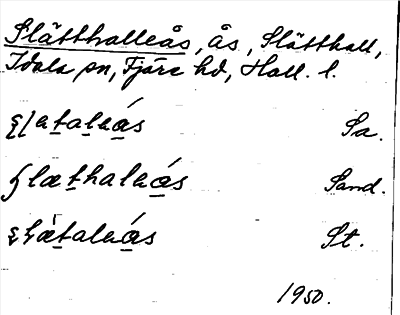 Slätthalleås, ås, Slätthall,
Idala sn, Fjäre hd, Hall. l.
Sa.
Sand.
St.
1950.